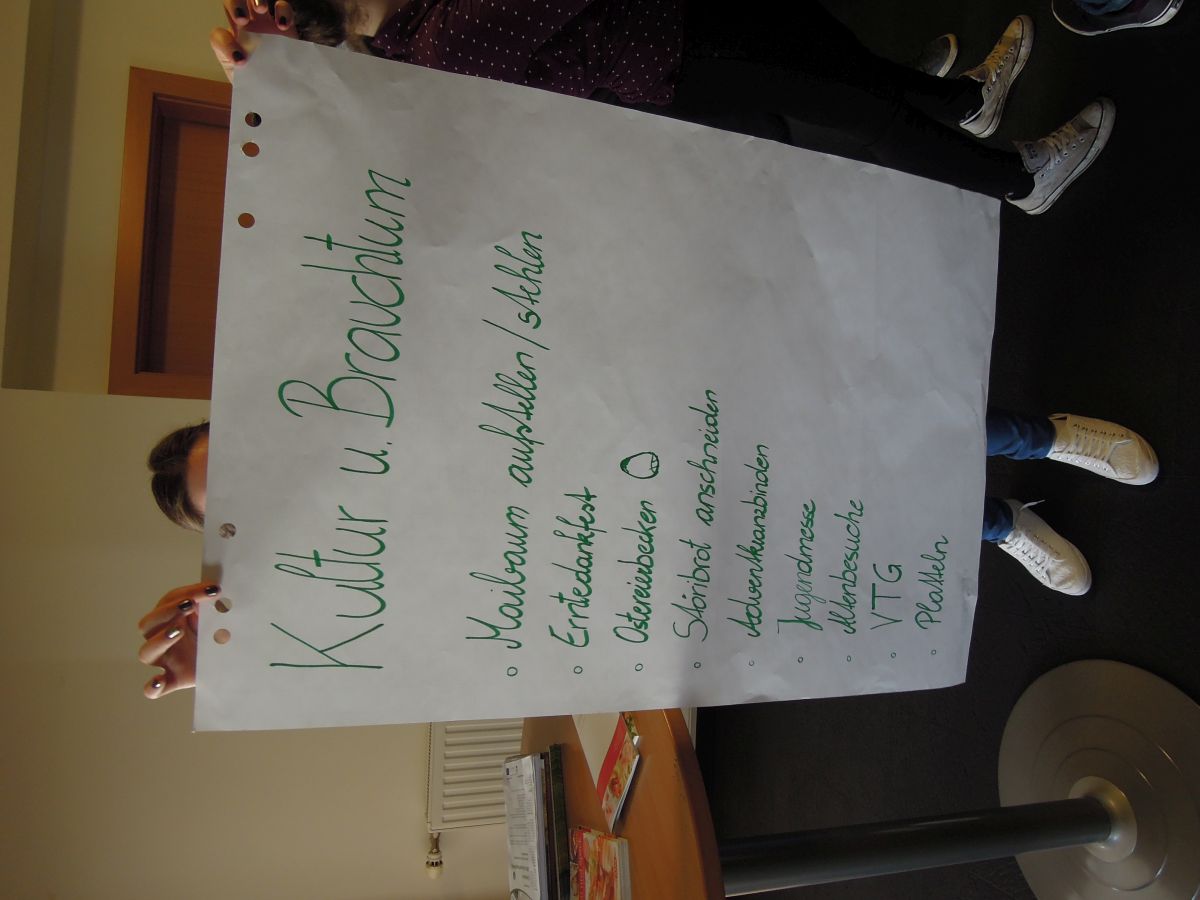 Kultur u. Brauchtum
◦ Maibaum aufstellen/stehlen
◦ Erntedankfest
◦ Ostereinbecken
◦ Störibrot anschneiden
◦ Adventkranzbinden
◦ Jugendmesse
◦ Altenbesuche
◦ VTG
◦ Platteln